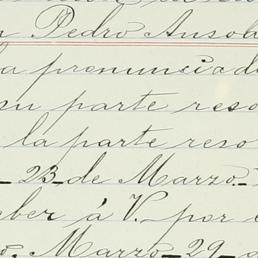 n Pedro Ansol
a pronunciad
su parte reso
la parte reso
23 de Marzo.
ber á V. por
o. Marzo 29